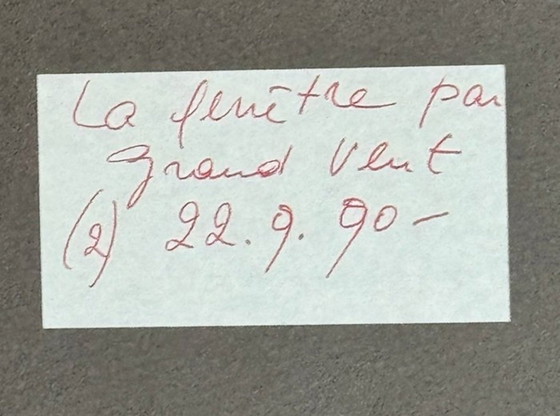 La fenêtre par
grand vent
(2) 22.9.90-